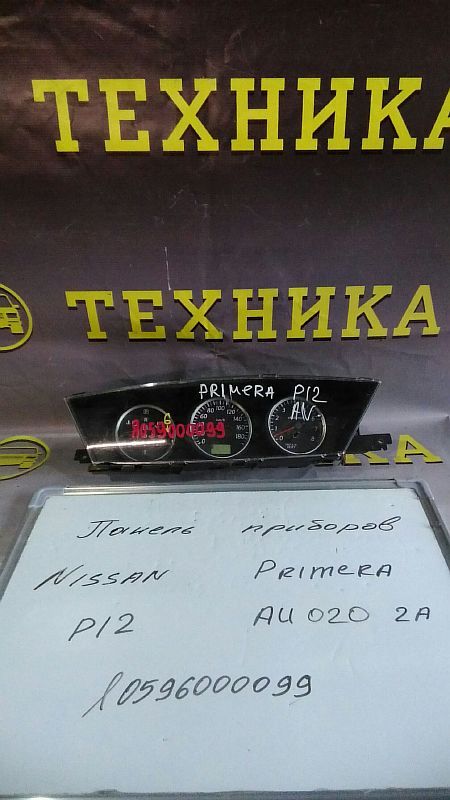 ТЕХНИКА
ТЕХНИКА
PRIMERA P12
AV-
80 100 120
60 140
160
0 180
ИКА
Панель приборов
NISSAN PRIMERA
P12 AU 020 2A
10596000099